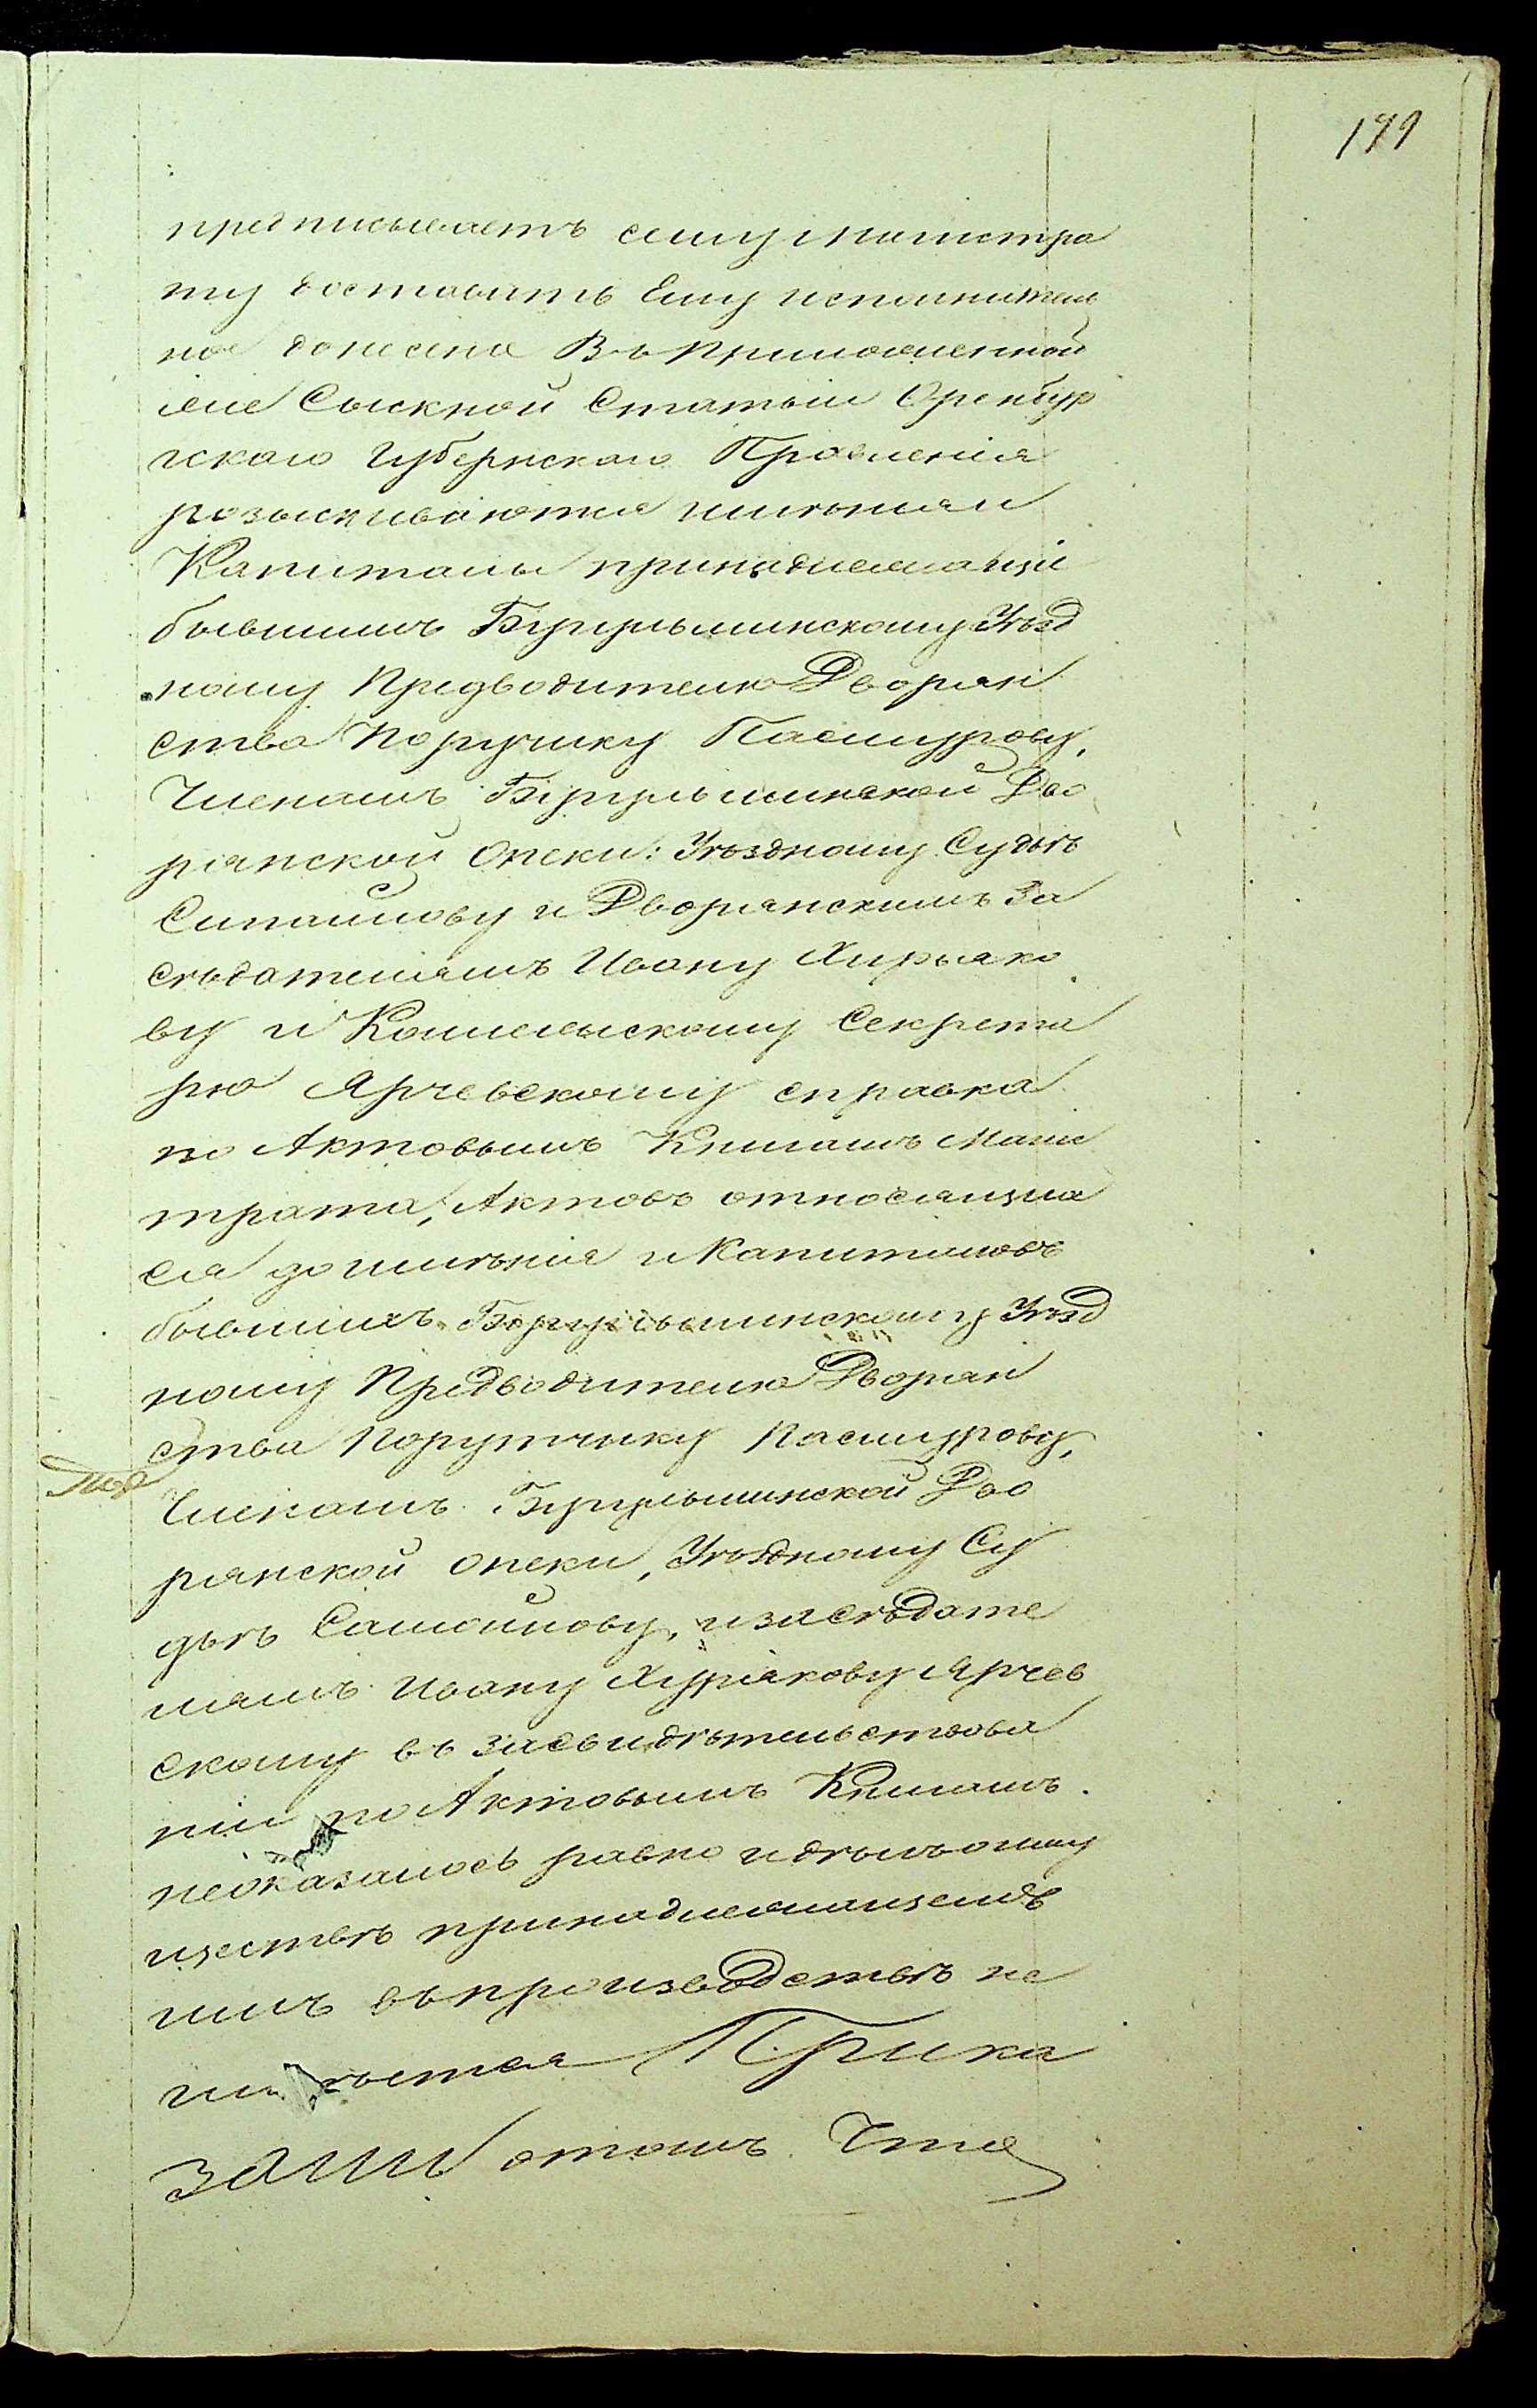 179
предписываетъ сему Магистра
ту доставить Ему исполнитель
ное донесение Въ приложенной
же Сыскной Статьи Оренбур
гскаго Губернскаго Правленія
розыскиваются имѣнія и
Капиталы принадлежащіе
бывшимъ Бугульминскому Уѣзд
ному Предводителю Дворян
ства Поручику Пасмурову,
Членамъ Бугульминской Дво
рянской Опеки: Уѣздному Судьѣ
и Дворянскимъ За
сѣдателямъ Ивану Хирьяко
ву и Коллежскому Секрета
рю Ярчевскому справка
по Актовымъ Книгамъ Магис
трата, Актовъ относящих
ся до имѣнія и Капиталовъ
бывшихъ Бугульминскому Уѣзд
ному Предводителю Дворян
ства Порутчику Пасмурову,
Членамъ Бугульминской Дво
рянской опеки, Уѣздному Су
дьѣ Самойлову, и засѣдате
лямъ Ивану Хирякову Ярчев
скому въ засвидѣтельствова
ніи по Актовымъ Книгамъ.
неоказалось равно и дѣлъ о иму
ществѣ принадлежащемъ
имъ въ производствѣ не
имѣется Прика
зали отомъ Что